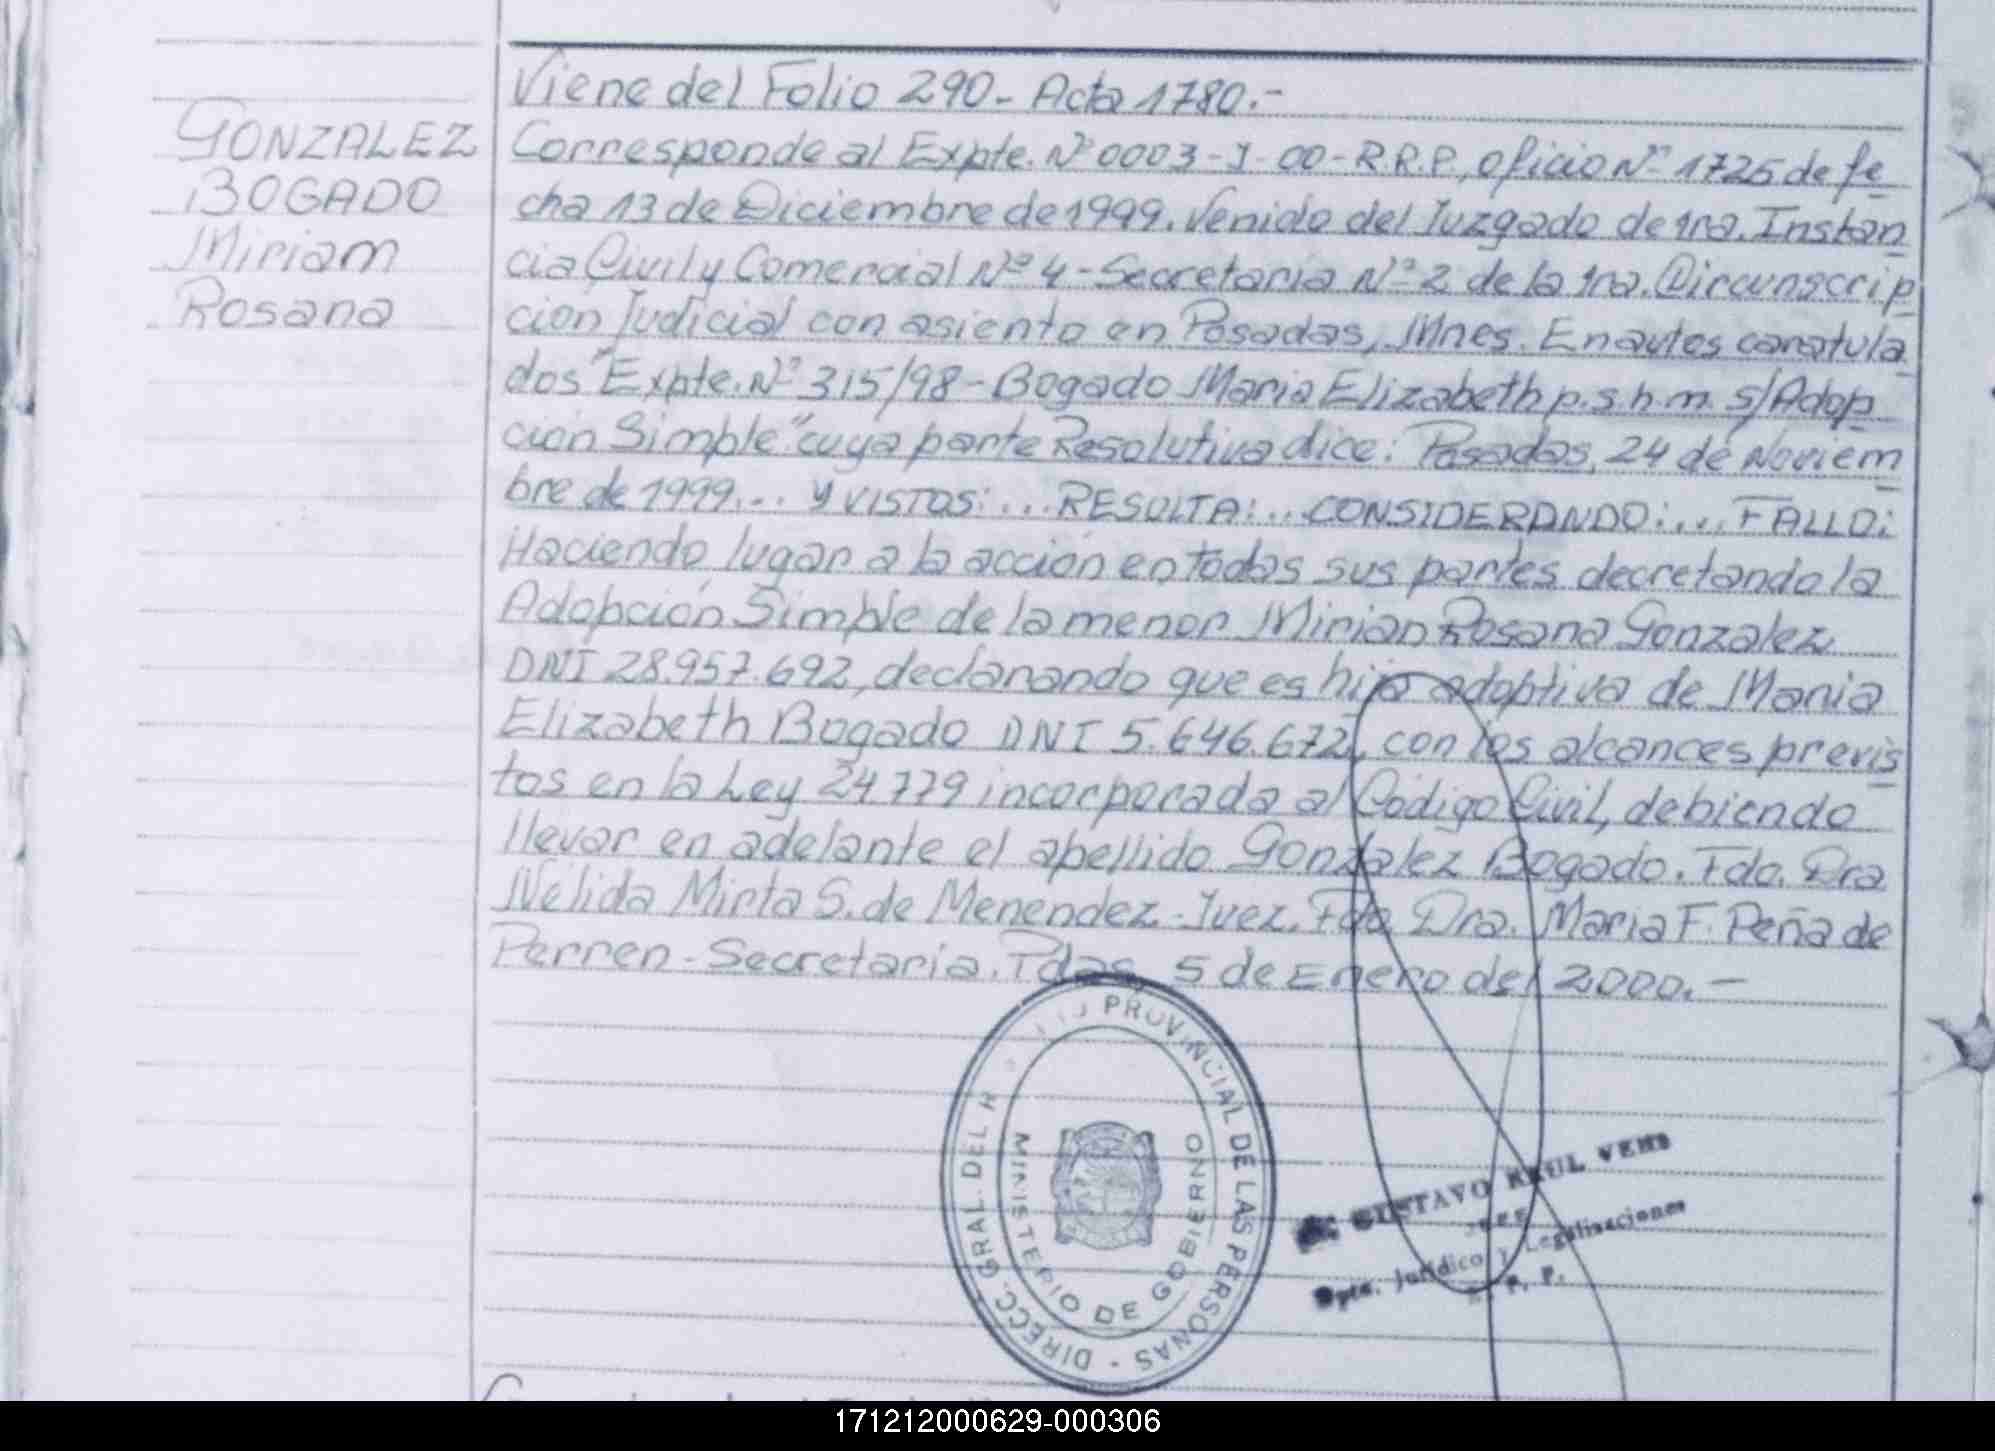 GONZALEZ
BOGADO
Miriam
Rosana
Viene del Folio 290.- Acta 1780.-
Corresponde al Expte. Nº 0003-J-00-R.R.P., oficio Nº 1725 de fe
cha 13 de Diciembre de 1999. Venido del Juzgado de 1ra. Instan
cia Civil y Comercial Nº 4 - Secretaria Nº 2 de la 1ra. Circunscrip
ción Judicial con asiento en Posadas, Mnes. En autos caratula
dos "Expte. Nº 315/98 - Bogado Maria Elizabeth p.s.h.m. s/Adop
ción Simple" cuya parte Resolutiva dice: Posadas, 24 de Noviem
bre de 1999... Y VISTOS:... RESULTA:... CONSIDERANDO:... FALLO:
Haciendo lugar a la acción en todas sus partes decretando la
Adopción Simple de la menor Mirian Rosana Gonzalez
DNI 28.957.692, declarando que es hija adoptiva de Maria
Elizabeth Bogado DNI 5.646.672, con los alcances previs
tos en la Ley 24.779 incorporada al Código Civil, debiendo
llevar en adelante el apellido Gonzalez Bogado. Fdo. Dra
Nélida Mirta S. de Menendez - Juez. Fdo. Dra. Maria F. Peña de
Perren - Secretaria. Pdas. 5 de Enero del 2000.-
PROVINCIAL DE LAS PERSONAS - DIRECC. GRAL. DEL R
MINISTERIO DE GOBIERNO
GUSTAVO RAUL
JEFE
Dpto. Jurídico y Legalizaciones
R. P. P.
171212000629-000306